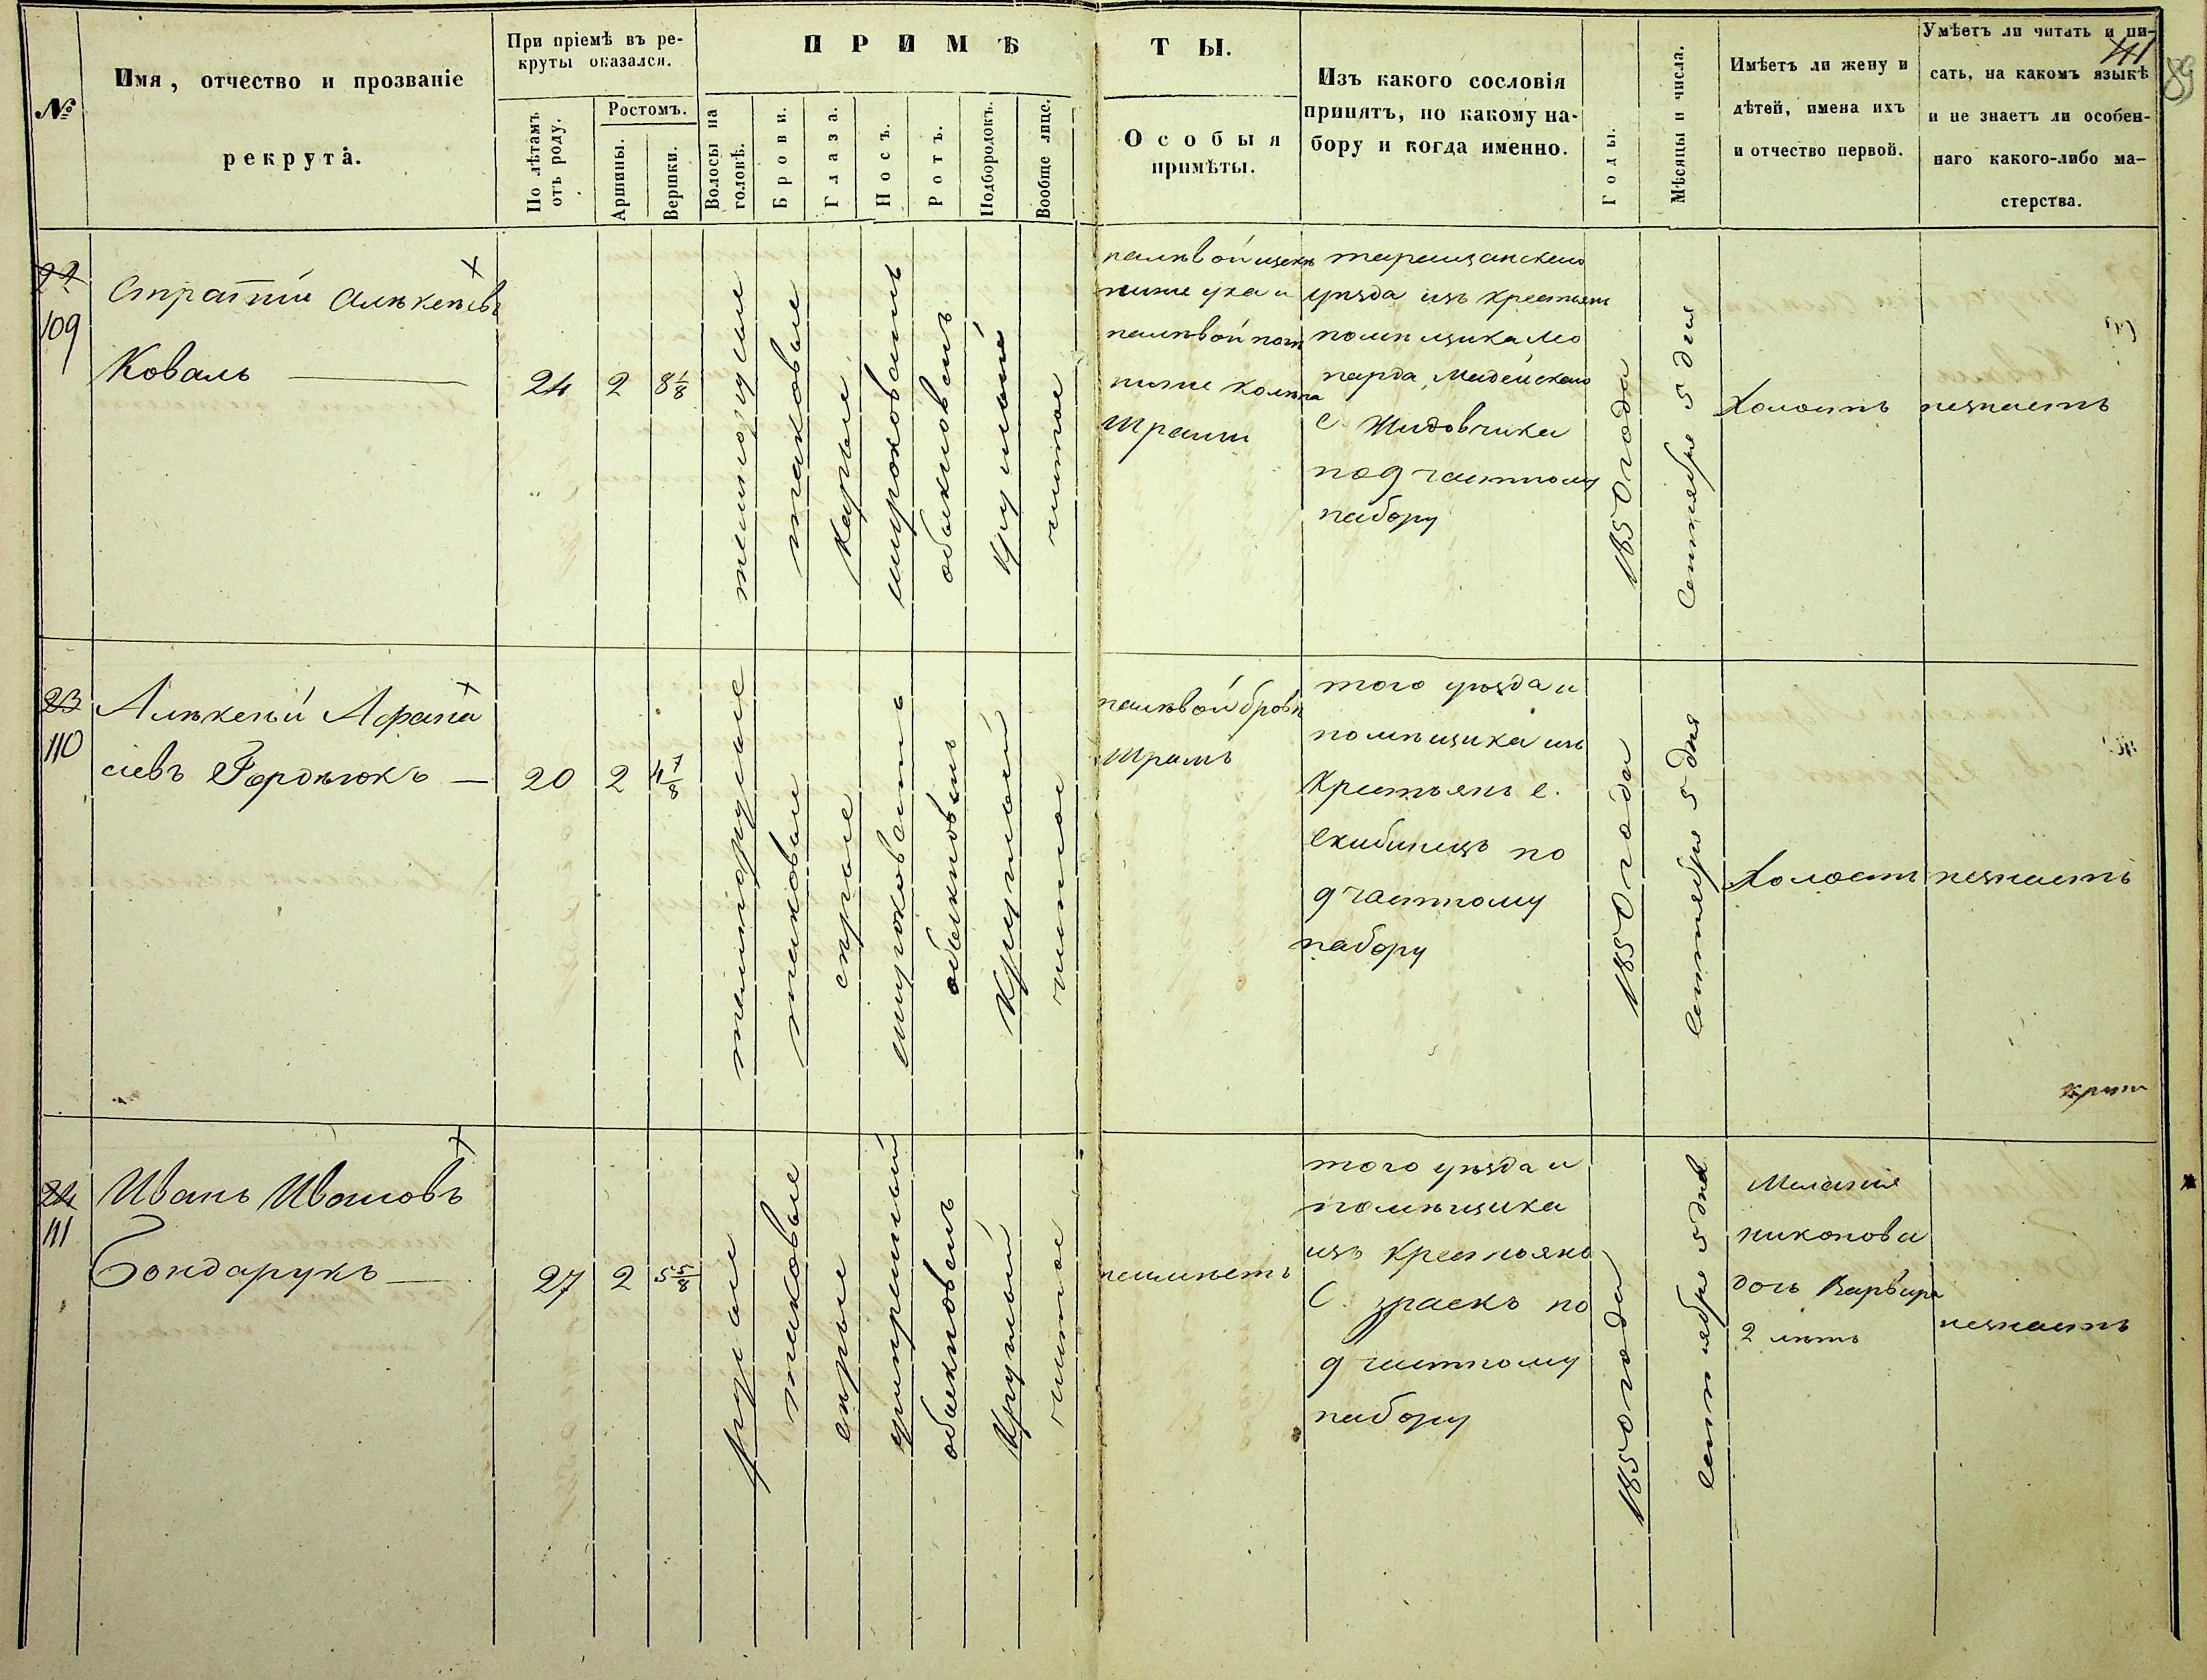 №
Имя, отчество и прозваніе
рекрута.
При пріемѣ въ ре-
круты оказался.
По лѣтамъ
отъ роду.
Ростомъ.
Аршины.
Вершки.
ПРИМѢ
Волосы на
головѣ.
Брови.
Глаза.
Носъ.
Ротъ.
Подбородокъ.
Вообще лице.
ТЫ.
Особыя
примѣты.
Изъ какого сословія
принятъ, по какому на-
бору и когда именно.
Годы.
Мѣсяцы и числа.
Имѣетъ ли жену и
дѣтей, имена ихъ
и отчество первой.
Умѣетъ ли читать и пи-
сать, на какомъ языкѣ
и не знаетъ ли особен-
наго какого-либо ма-
стерства.
41
89
22
109
Коваль
24
2
8 1/8
такговые
карые
широковатъ
обыкновенъ
круглый
чистое
налѣвой щекѣ
ниже уха и
налѣвой ногѣ
ниже колѣна
шрамы
таращанскаго
уѣзда изъ крестьянъ
помѣщика Лео
нарда
с. Жидовчика
по 9 частному
набору
1850 года
Сентября 5 дня
Холостъ
незнаетъ
23
110
Алѣксѣй Афана
сіевъ
20
2
4 7/8
таковые
сѣрые
широковатъ
обыкновенъ
Круглый
чистое
налѣвой бровѣ
шрамъ
того уѣзда и
помѣщика изъ
крестьянъ с.
Скибинецъ по
9 частному
набору
1850 года
Сентября 5 дня
Холостъ
незнаетъ
24
111
Иванъ Ивановъ
Бондарукъ
27
2
5 5/8
русые
таковые
сѣрые
умѣренный
обыкновенъ
Круглый
чистое
неимѣетъ
того уѣзда и
помѣщика
изъ крестьянъ
С. по
9 частному
набору
1850 года
Сентября 5 дня
Меланія
никонова
дочь Варвара
2 лѣтъ
незнаетъ